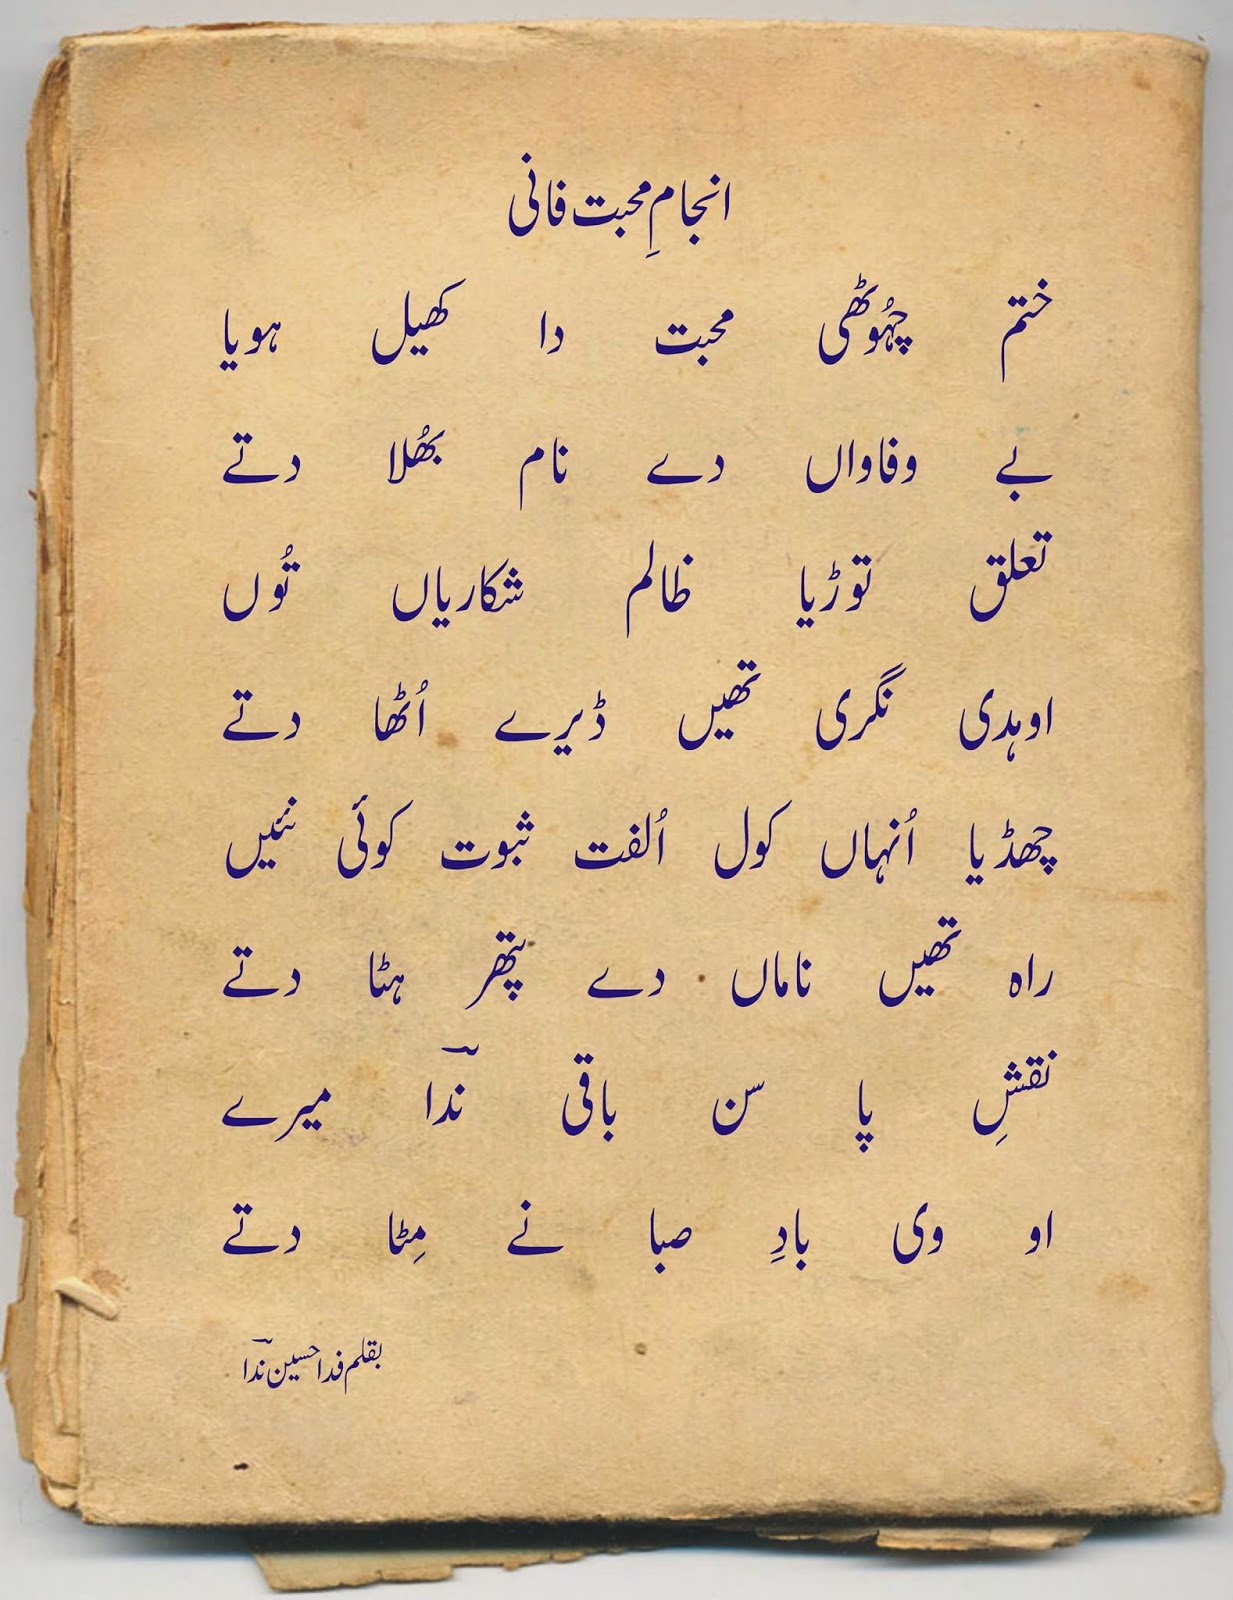 انجامِ محبت فانی
ختم چہُوٹھی محبت دا کھیل ہویا
بے وفاواں دے نام بھُلا دتے
تعلق توڑیا ظالم شکاریاں تُوں
اوہدی نگری تھیں ڈیرے اُٹھا دتے
چھڈیا اُنہاں کول اُلفت ثبوت کوئی نئیں
راہ تھیں ناماں دے پتھر ہٹا دتے
نقشِ پا سن باقی نداؔ میرے
او وی بادِ صبا نے مِٹا دتے
بقلم فدا حسین نداؔ